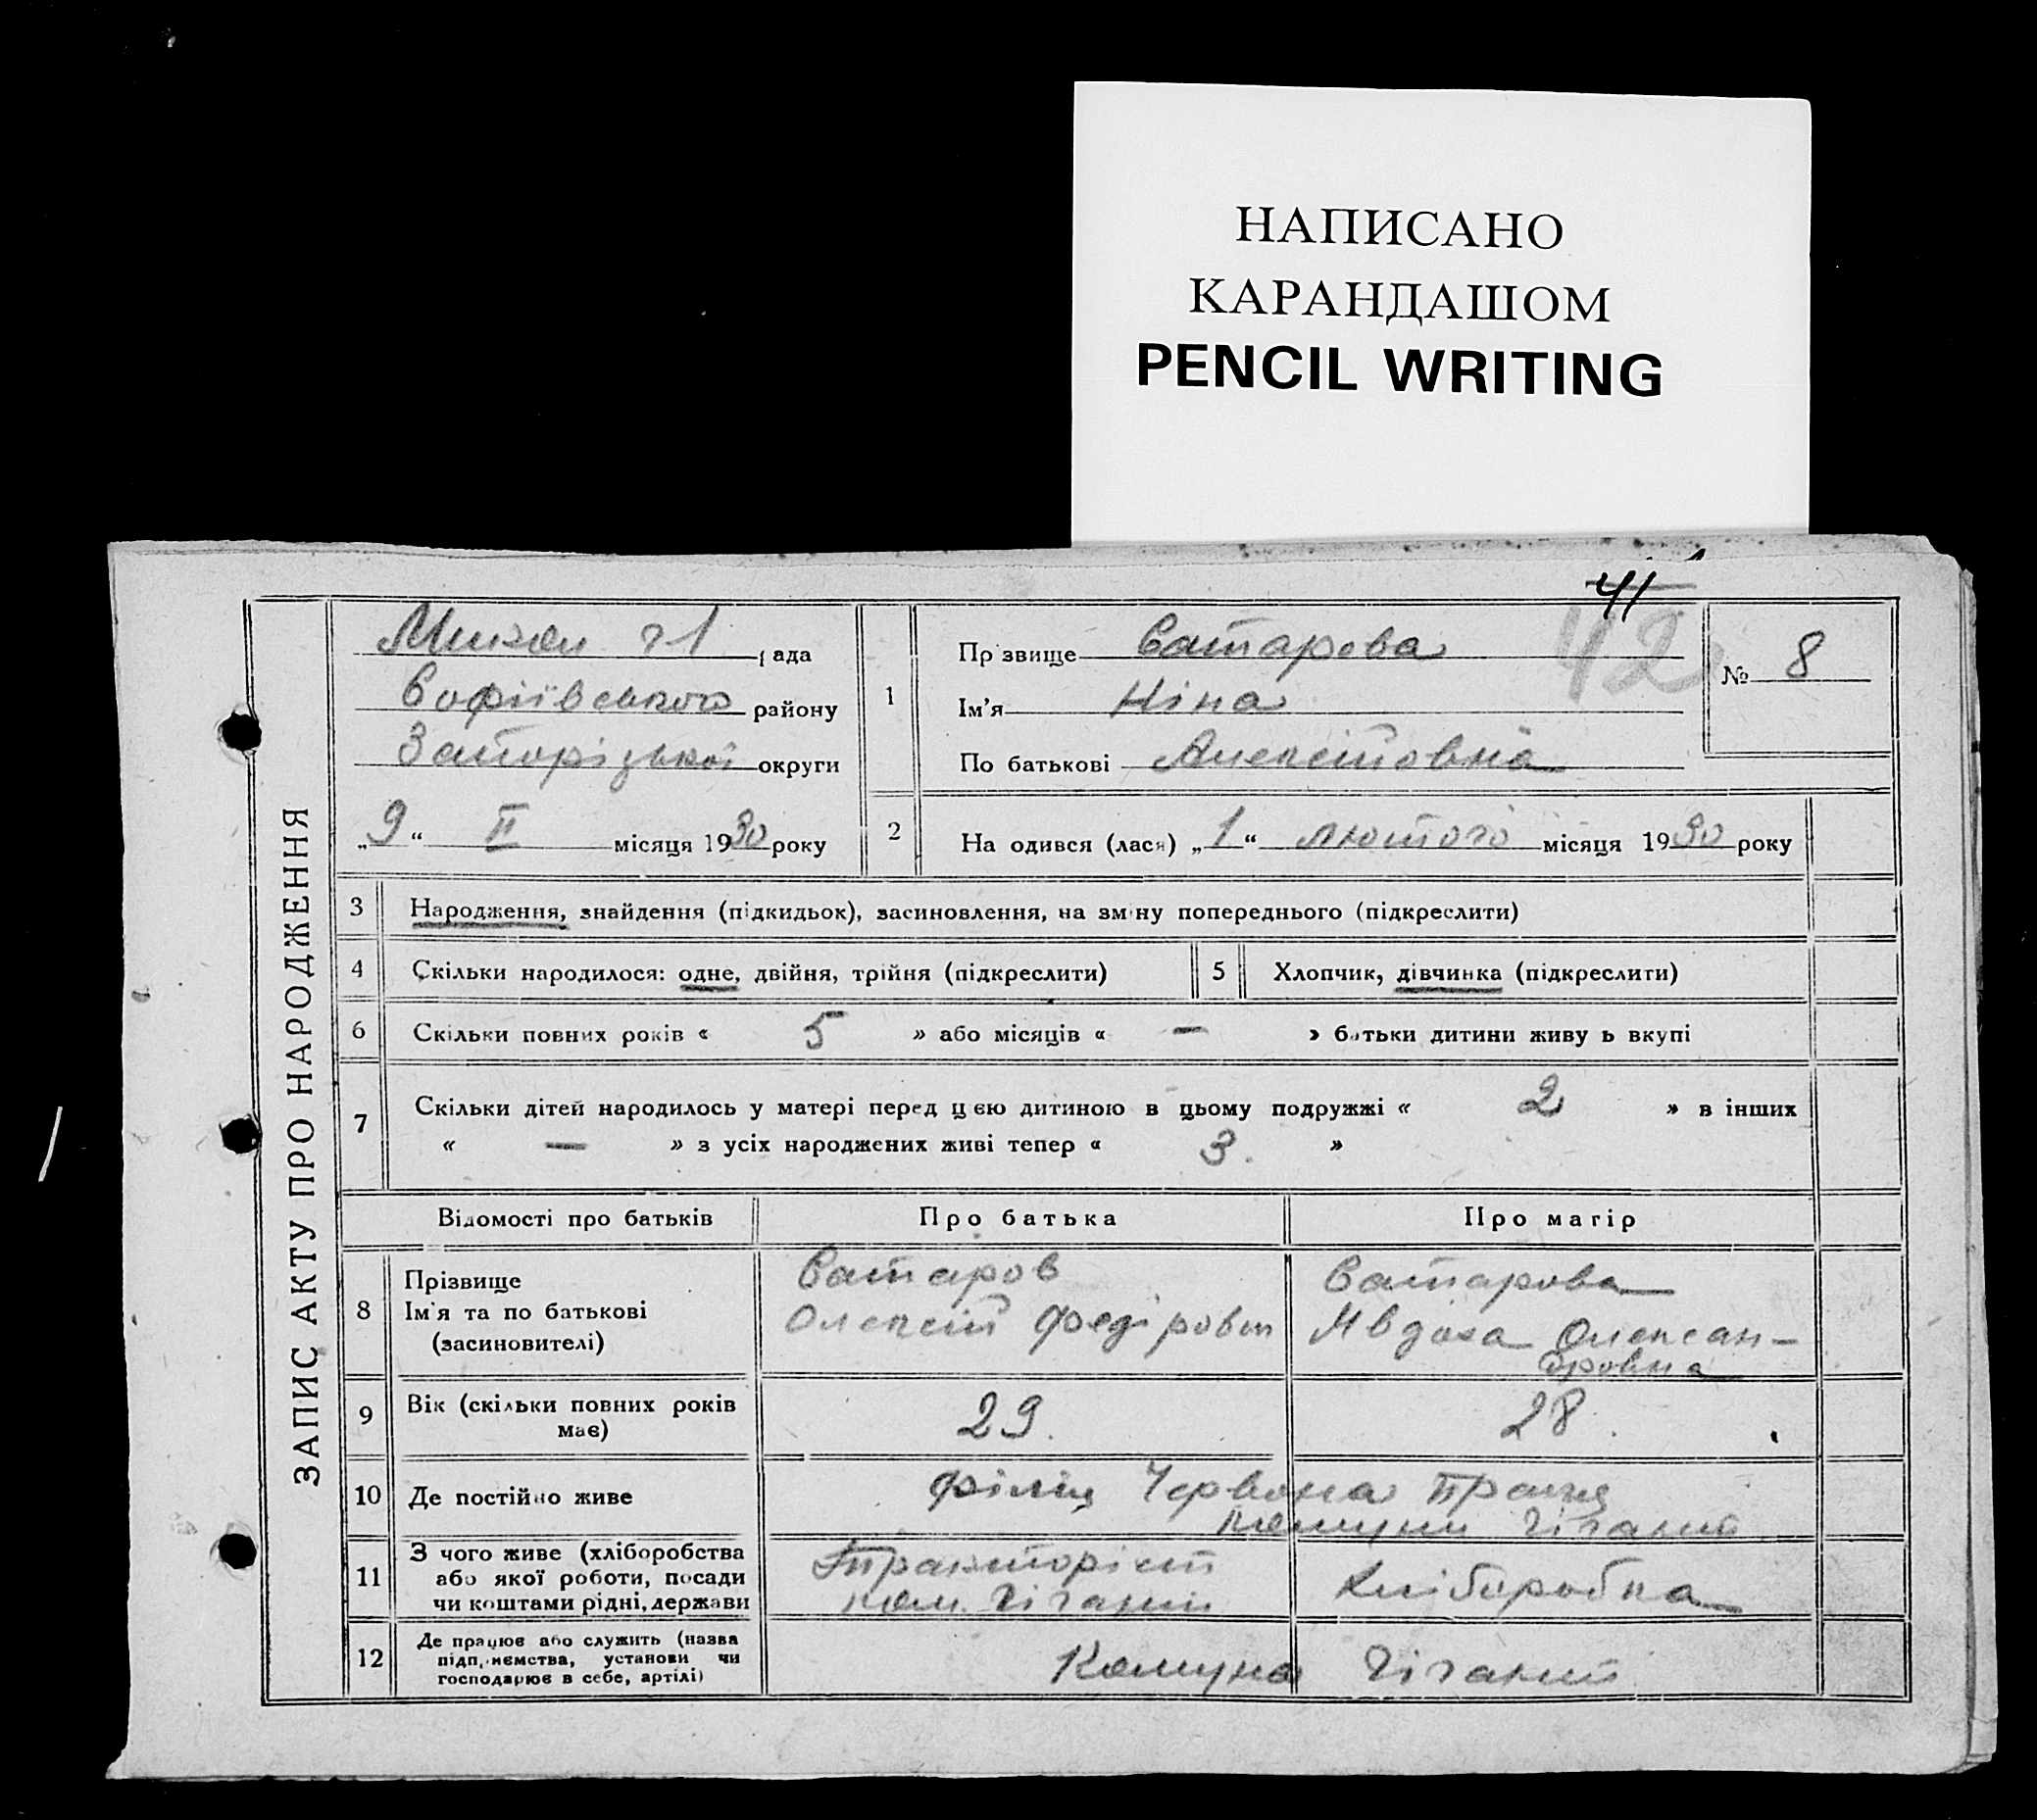 НАПИСАНО
КАРАНДАШОМ
PENCIL WRITING
41
42
ЗАПИС АКТУ ПРО НАРОДЖЕННЯ
№ 8
Михай г1 рада
Софіївського району
Запорізької округи
„9“ II місяця 1930 року
1
Прізвище Сатарова
Ім'я Ніна
По батькові Алексіївна
2 На одився (лася) „1“ лютого місяця 1930 року
3 Народження, знайдення (підкидьок), засиновлення, на зміну попереднього (підкреслити)
4 Скільки народилося: одне, двійня, трійня (підкреслити)
5 Хлопчик, дівчинка (підкреслити)
6 Скільки повних років « 5 » або місяців « — » батьки дитини живу ь вкупі
7 Скільки дітей народилось у матері перед цією дитиною в цьому подружжі « 2 » в інших
« — » з усіх народжених живі тепер « 3. »
Відомості про батьків Про батька Про матір
8 Прізвище
Ім'я та по батькові
(засиновителі)
Сатаров
Олексій Федіровіч
Сатарова
Явдоха Олексан-
дровна
9 Вік (скільки повних років
має)
29.
28.
10 Де постійно живе
Філія Червона Праця
Комуни Гігант
11 З чого живе (хліборобства
або якої роботи, посади
чи коштами рідні, держави
Тракторіст
ком. Гігант
Хліборобка
12 Де працює або служить (назва
підприємства, установи чи
господарює в себе, артілі)
Комуна Гігант